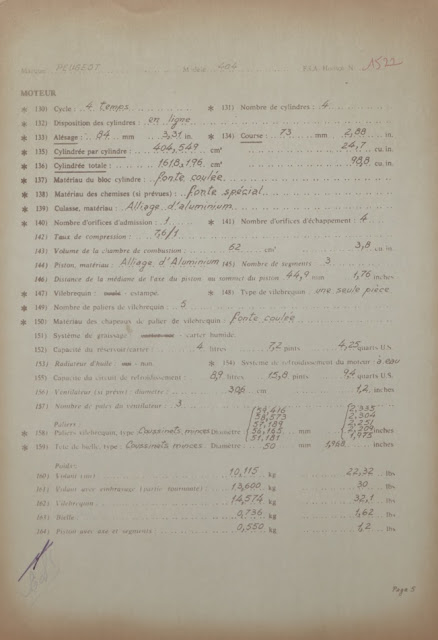 Marque PEUGEOT Modèle 404 F.I.A. Homol. N. 1522
MOTEUR
* 130) Cycle : 4 temps * 131) Nombre de cylindres : 4
* 132) Disposition des cylindres : en ligne
* 133) Alésage : 84 mm 3,31 in. * 134) Course : 73 mm 2,88 in.
* 135) Cylindrée par cylindre : 404,549 cm³ 24,7 cu in.
* 136) Cylindrée totale : 1618,196 cm³ 98,8 cu in.
* 137) Matériau du bloc cylindre : fonte coulée
* 138) Matériau des chemises (si prévues) : fonte spécial
* 139) Culasse, matériau : Alliage d'aluminium
* 140) Nombre d'orifices d'admission : 1 * 141) Nombre d'orifices d'échappement : 4
142) Taux de compression : 7,6/1
143) Volume de la chambre de combustion : 62 cm³ 3,8 cu in.
144) Piston, matériau : Alliage d'Aluminium 145) Nombre de segments 3
146) Distance de la médiane de l'axe du piston au sommet du piston 44,9 mm 1,76 inches
* 147) Vilebrequin : estampé. * 148) Type de vilebrequin : une seule pièce
* 149) Nombre de paliers de vilebrequin : 5
* 150) Matériau des chapeaux de palier de vilebrequin : fonte coulée
151) Système de graissage : carter humide.
152) Capacité du réservoir/carter : 4 litres 7,2 pints 4,25 quarts U.S.
153) Radiateur d'huile : non. * 154) Système de refroidissement du moteur : à eau
155) Capacité du circuit de refroidissement : 8,9 litres 15,8 pints 9,4 quarts U.S.
156) Ventilateur (si prévu) : diamètre : 306 cm 1,2 inches
157) Nombre de pales du ventilateur : 3
Paliers :
* 158) Paliers vilebrequin, type : Coussinets minces Diamètre 59,416 58,573 57,189 56,165 51,181 mm 2,335 2,304 2,251 2,209 1,975 inches
* 159) Tête de bielle, type : Coussinets minces. Diamètre : 50 mm 1,968 inches
Poids :
160) Volant (nu) : 10,115 kg 22,32 lbs
161) Volant avec embrayage (partie tournante) : 13,600 kg 30 lbs
162) Vilebrequin : 14,574 kg 32,1 lbs
163) Bielle : 0,736 kg 1,62 lbs
164) Piston avec axe et segments : 0,550 kg 1,2 lbs
Page 5